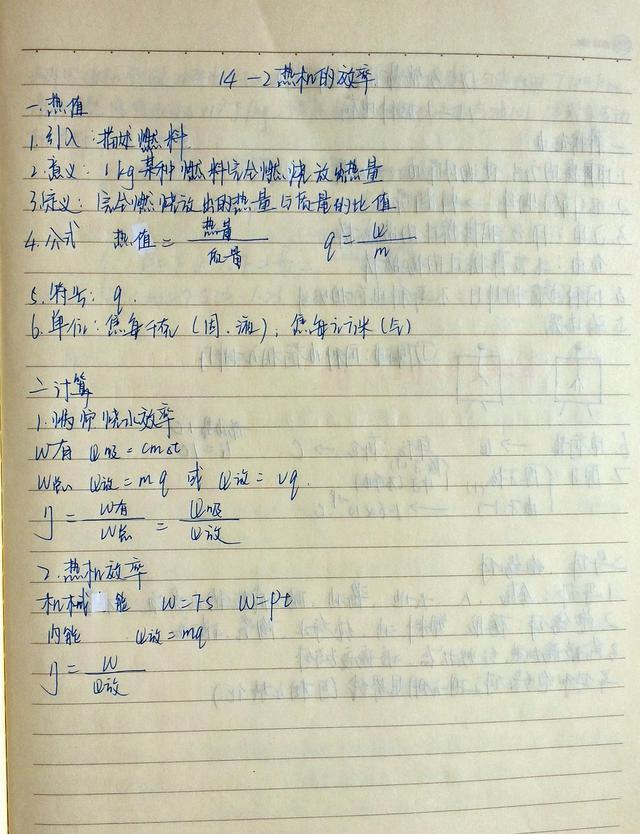 14-2热机的效率
一.热值
1.引入:描述燃料
2.意义:1kg某种燃料完全燃烧放出热量
3.定义:完全燃烧放出的热量与质量的比值
4.公式 热值=热量/质量 q=Q/m
5.符号:q.
6.单位:焦每千克(固、液),焦每立方米(气)
二计算
1.炉烧水效率
W有 Q吸=cmΔt
W总 Q放=mq 或 Q放=Vq.
η=W有/W总=Q吸/Q放
2.热机效率
机械能 W=FS W=Pt
内能 Q放=mq
η=W/Q放